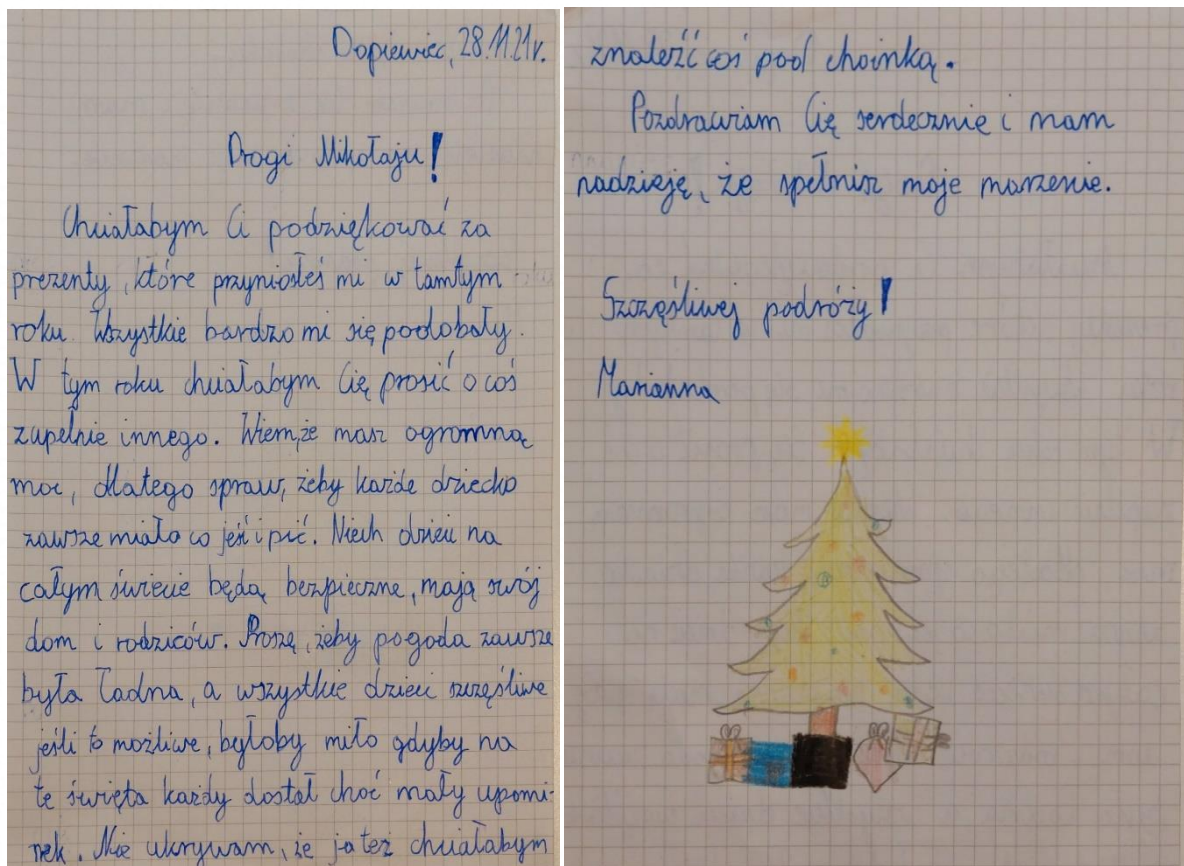 Dopiewiec, 28.11.21r.
Drogi Mikołaju!
Chciałabym Ci podziękować za
prezenty, które przyniosłeś mi w tamtym
roku. Wszystkie bardzo mi się podobały.
W tym roku chciałabym Cię prosić o coś
zupełnie innego. Wiem, że masz ogromną
moc, dlatego spraw, żeby każde dziecko
zawsze miało co jeść i pić. Niech dzieci na
całym świecie będą bezpieczne, mają swój
dom i rodziców. Proszę, żeby pogoda zawsze
była ładna, a wszystkie dzieci szczęśliwe
jeśli to możliwe, byłoby miło gdyby na
te święta każdy dostał choć mały upomi-
nek. Nie ukrywam, że ja też chciałabym
znaleźć coś pod choinką.
Pozdrawiam Cię serdecznie i mam
nadzieję, że spełnisz moje marzenie.
Szczęśliwej podróży!
Marianna